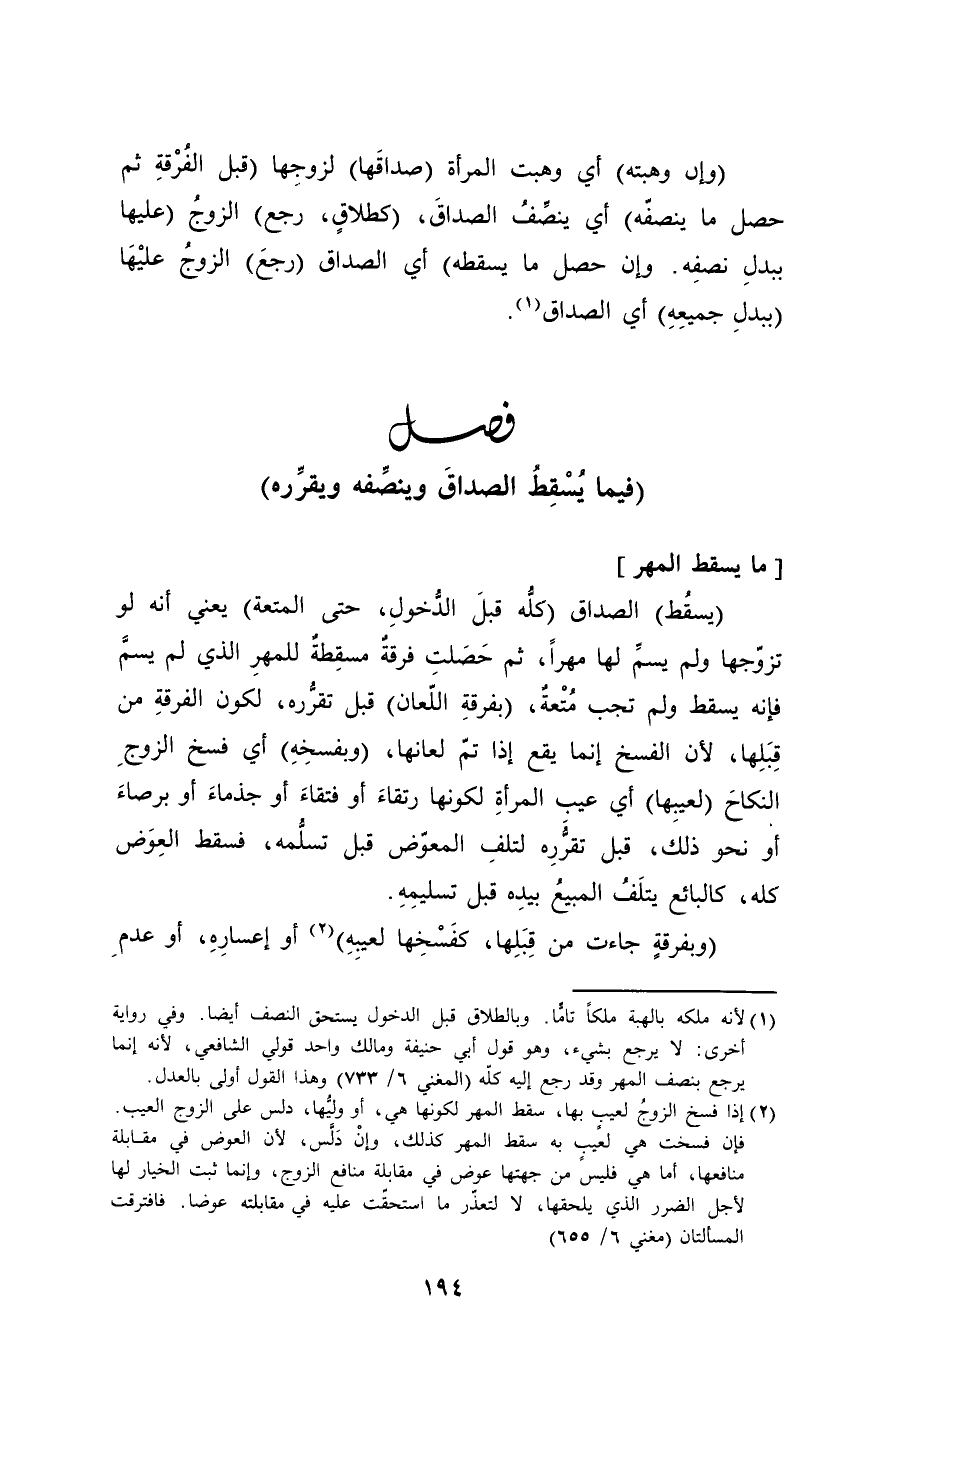 (وإن وهبته) أي وهبت المرأة (صداقَها) لزوجِها (قبل الفُرْقةِ ثم
حصل ما ينصفّه) أي ينصِّفُ الصداقَ، (كطلاقٍ، رجع) الزوجُ (عليها
ببدلِ نصفِه. وإن حصل ما يسقطه) أي الصداق (رجعَ) الزوجُ عليْهَا
(ببدلِ جميعِهِ) أي الصداق(١).
فصل
(فيما يُسْقِطُ الصداقَ وينصِّفه ويقرِّره)
[ ما يسقط المهر ]
(يسقُط) الصداق (كلُّه قبلَ الدُّخولِ، حتى المتعة) يعني أنه لو
تزوّجها ولم يسمِّ لها مهراً، ثم حَصَلتِ فرقةٌ مسقِطةٌ للمهرِ الذي لم يسمَّ
فإنه يسقط ولم تجب مُتْعةٌ، (بفرقةِ اللّعان) قبل تقرُّره، لكون الفرقةِ من
قِبَلِها، لأن الفسخ إنما يقع إذا تمّ لعانها، (وبفسخِهِ) أي فسخ الزوجِ
النكاحَ (لعيبِها) أي عيبِ المرأةِ لكونها رتقاءَ أو فتقاءَ أو جذماءَ أو برصاءَ
أو نحو ذلك، قبل تقرُّرِه لتلفِ المعوّض قبل تسلُّمه، فسقط العِوَض
كله، كالبائع يتلَفُ المبيعُ بيدِه قبل تسليمِهِ.
(وبفرقةٍ جاءت من قِبَلِها، كفَسْخِها لعيبِهِ)(٢) أو إعسارِهِ، أو عدمِ
(١) لأنه ملكه بالهبة ملكاً تامًّا. وبالطلاق قبل الدخول يستحق النصف أيضا. وفي رواية
أخرى: لا يرجع بشيء، وهو قول أبي حنيفة ومالك واحد قولي الشافعي، لأنه إنما
يرجع بنصف المهر وقد رجع إليه كلّه (المغني ٦/ ٧٣٣) وهذا القول أولى بالعدل.
(٢) إذا فسخ الزوجُ لعيبٍ بها، سقط المهر لكونها هي، أو وليُّها، دلس على الزوج العيب.
فإن فسخت هي لعيبٍ به سقط المهر كذلك، وإنْ دَلَّس، لأن العوض في مقـابلة
منافعها، أما هي فليس من جهتها عوض في مقابلة منافع الزوج، وإنما ثبت الخيار لها
لأجل الضرر الذي يلحقها، لا لتعذّر ما استحقّت عليه في مقابلته عوضا. فافترقت
المسألتان (مغني ٦/ ٦٥٥)
١٩٤